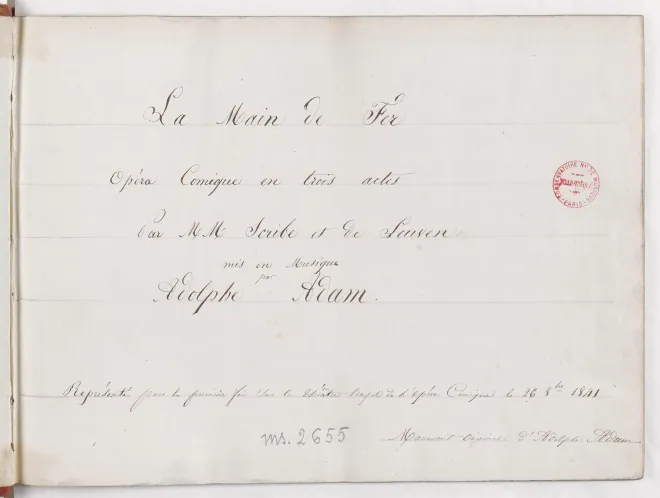 La Main de Fer
Opéra Comique en trois actes
Par MM Scribe et de Leuven
mis en Musique
par
Adolphe Adam.
Représenté pour la première fois sur le théâtre Royal de l'Opéra Comique le 26 8bre 1841
ms. 2655
Manuscrit original d'Adolphe Adam
CONSERVATOIRE NAL DE MUSIQUE
BIBLIOTHÈQUE
PARIS